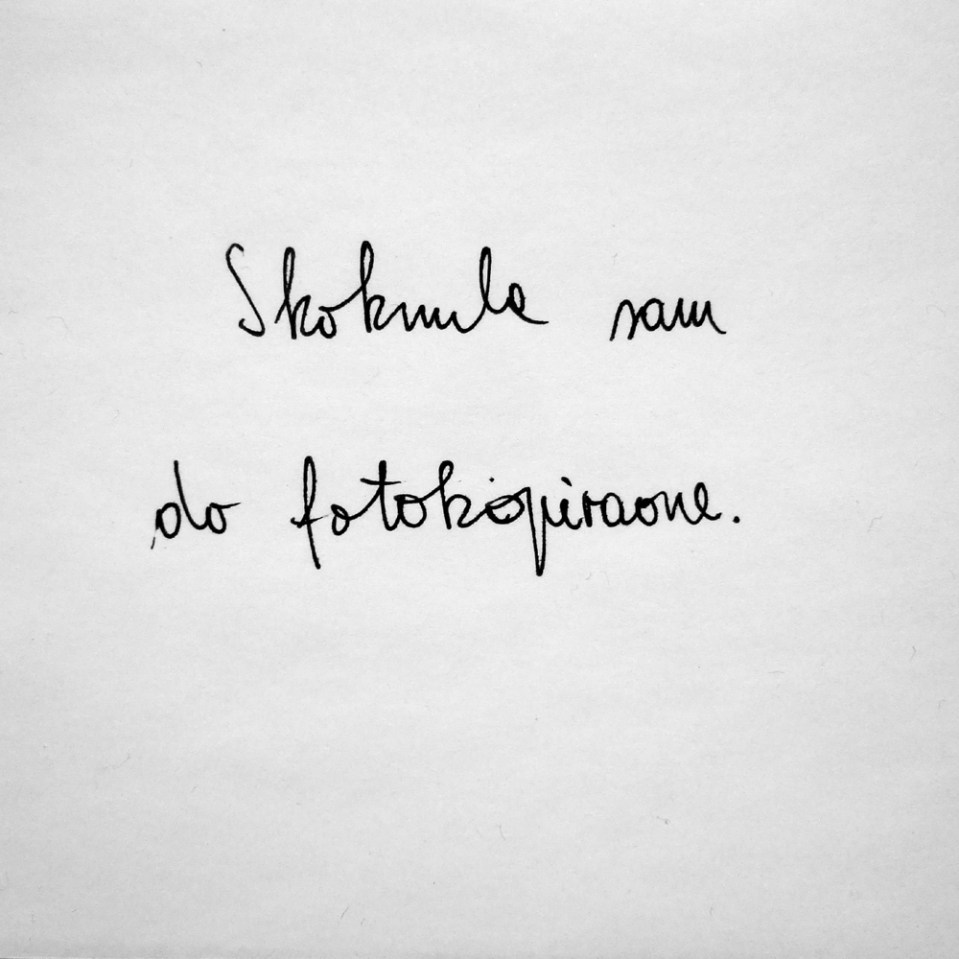 Skoknula sam
do fotokopiraone.